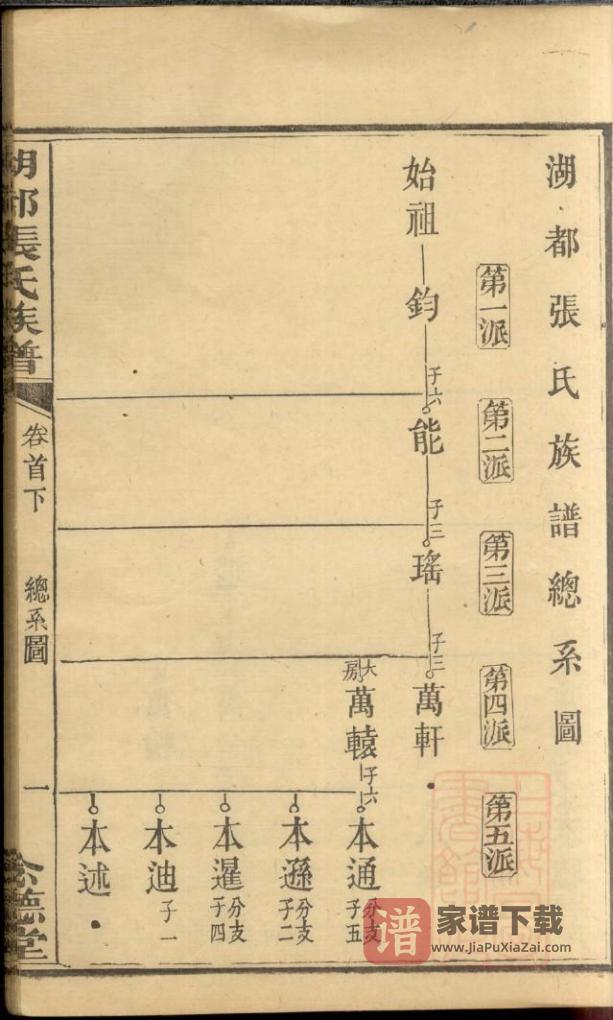 湖都張氏族譜總系圖
第一派
第二派
第三派
第四派
第五派
始祖
鈞
子六
能
子三
瑤
子三
萬軒
大房
萬轅
子六
本通
分支
子五
本遜
分支
子二
本暹
分支
子四
本迪
子一
本述
湖都張氏族譜
卷首下
總系圖
一
德堂
谱
家谱下载
www.JiaPuXiaZai.com